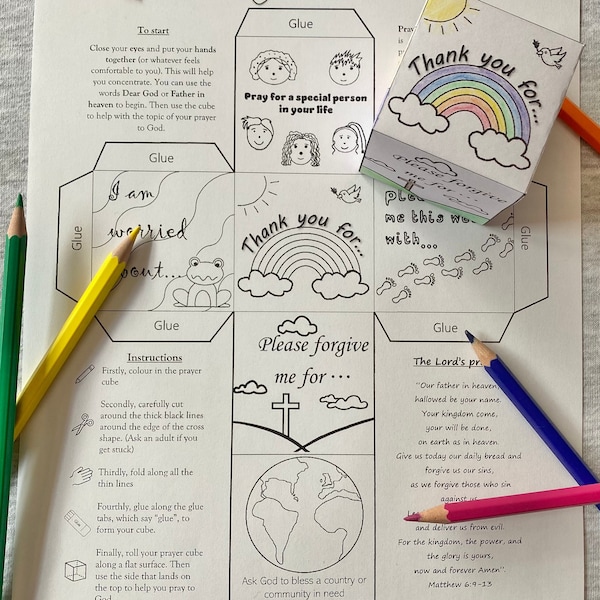 To start
Close your eyes and put your hands
together (or whatever feels
comfortable to you). This will help
you concentrate. You can use the
words Dear God or Father in
heaven to begin. Then use the cube
to help with the topic of your prayer
to God.
Glue
Pray for a special person
in your life
Thank you for...
Please forgive
me for...
Glue
Glue
I am
worried
about...
Thank you for...
me this
with...
Glue
Glue
Glue
Please forgive
me for ...
Instructions
Firstly, colour in the prayer
cube
Secondly, carefully cut
around the thick black lines
around the edge of the cross
shape. (Ask an adult if you
get stuck)
Thirdly, fold along all the
thin lines
Fourthly, glue along the glue
tabs, which say "glue", to
form your cube.
Glue
Finally, roll your prayer cube
along a flat surface. Then
use the side that lands on
the top to help you pray to
God.
Ask God to bless a country or
community in need
The Lord's
"Our father in heaven,
hallowed be your name.
Your kingdom come,
your will be done,
on earth as in heaven.
Give us today our daily bread and
forgive us our sins,
as we forgive those who sin
against us.
and deliver us from evil.
For the kingdom, the power, and
the glory is yours,
now and forever Amen".
Matthew 6:9-13